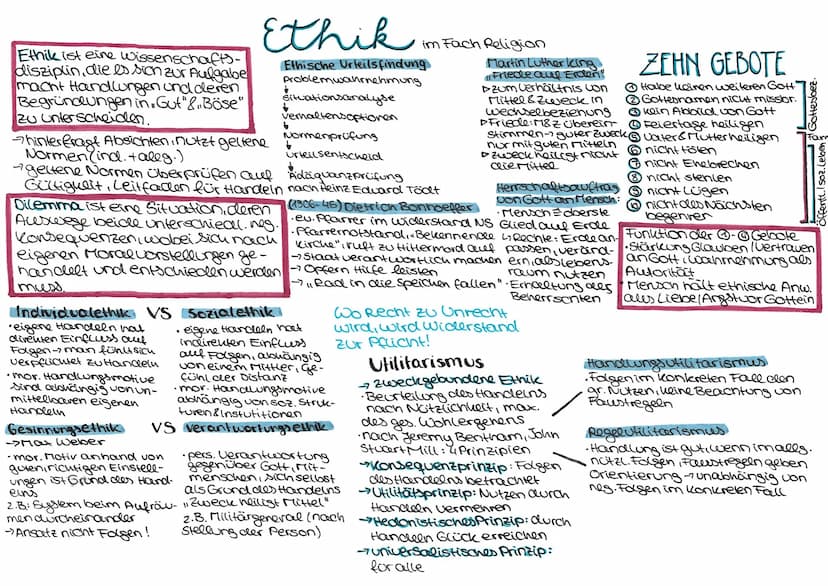 Ethik im Fach Religion
Ethik ist eine Wissenschafts-
disziplin, die es sich zur Aufgabe
macht Handlungen und deren
Begründungen in „Gut“ & „Böse“
zu unterscheiden.
→ hinterfragt Absichten, nutzt geltene
Normen (ind. + allg.)
→ geltene Normen überprüfen auf
Gültigkeit, Leitfaden für Handeln
Dilemma ist eine Situation, deren
Auswege beide unterschiedl. neg.
Konsequenzen, wobei sich nach
eigenen Moralvorstellungen ge-
handelt und entschieden werden
muss.
Ethische Urteilsfindung
Problemwahrnehmung
Situationsanalyse
Verhaltensoptionen
Normenprüfung
Urteilsentscheid
Adäquanzprüfung
nach Heinz Eduard Tödt
Martin Luther King
„Friede auf Erden“
▷ zum Verhältnis von
Mittel & Zweck in
Wechselbeziehung
▷ Friede: M & Z überein-
stimmen → guter Zweck
nur mit guten Mitteln
▷ Zweck heiligt nicht
die Mittel
ZEHN GEBOTE
① Habe keinen weiteren Gott
② Gottesnamen nicht missbr.
③ kein Abbild von Gott
④ Feiertage heiligen
⑤ Vater & Mutter heiligen
⑥ nicht töten
⑦ nicht Ehebrechen
⑧ nicht stehlen
⑨ nicht Lügen
⑩ nicht des Nächsten
begehren
Gottesbez.
Fam.
Öffentl. / soz. Leben
(1906-45) Dietrich Bonhoeffer
· ev. Pfarrer im Widerstand NS
· Pfarrernotstand, „Bekennende
Kirche“ ruft zu Hitlermord auf
→ Staat verantwortlich machen
→ Opfern Hilfe leisten
→ „Rad in die Speichen fallen“
Herrschaftsauftrag
von Gott an Mensch:
· Mensch = oberste
Glied auf Erde
· Rechte: Erde an-
passen, veränd-
ern, als Lebens-
raum nutzen
· Erhaltung der
Beherrschten
Funktion der ①-④ Gebote
· Stärkung Glauben/Vertrauen
an Gott, Wahrnehmung als
Autorität
· Mensch hält ethische Anw.
als Liebe/Angst vor Gott ein
Individualethik VS Sozialethik
· eigene Handeln hat
direkten Einfluss auf
Folgen → man fühlt sich
verpflichtet zu Handeln
· mor. Handlungsmotive
sind abhängig von un-
mittelbaren eigenen
Handeln
· eigene Handeln hat
indirekten Einfluss
auf Folgen, abhängig
von einem Mittler, Ge-
fühl der Distanz
· mor. Handlungsmotive
abhängig von soz. Struk-
turen & Institutionen
Gesinnungsethik VS Verantwortungsethik
→ Max Weber
· mor. Motiv anhand von
guten richtigen Einstell-
ungen ist Grund des Hand-
elns
z.B.: System beim Aufräu-
men durcheinander
→ Ansatz nicht Folgen!
· pers. Verantwortung
gegenüber Gott, Mit-
menschen, sich selbst
als Grund des Handelns
„Zweck heiligt Mittel“
z.B. Militärgeneral (nach
Stellung der Person)
Wo Recht zu Unrecht
wird, wird Widerstand
zur Pflicht!
Utilitarismus
→ zweckgebundene Ethik
· Beurteilung des Handelns
nach Nützlichkeit, max.
des ges. Wohlergehens
· nach Jeremy Bentham, John
Stuart Mill: 4 Prinzipien
→ Konsequenzprinzip: Folgen
des Handelns betrachtet
→ Utilitätsprinzip: Nutzen durch
Handeln vermehren
→ Hedonistisches Prinzip: durch
Handeln Glück erreichen
→ universalistisches Prinzip:
für alle
Handlungsutilitarismus
· Folgen im konkreten Fall den
gr. Nutzen, keine Beachtung von
Faustregeln
Regelutilitarismus
· Handlung ist gut, wenn im allg.
nützl. Folgen, Faustregeln geben
Orientierung → unabhängig von
neg. Folgen im konkreten Fall